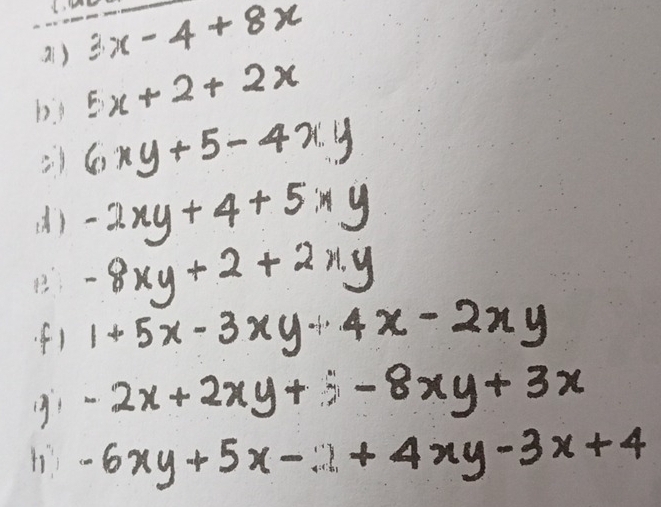 a) 3x - 4 + 8x
b) 5x + 2 + 2x
c) 6xy + 5 - 4xy
d) -2xy + 4 + 5xy
e) -8xy + 2 + 2xy
f) 1 + 5x - 3xy + 4x - 2xy
g) -2x + 2xy + 5 - 8xy + 3x
h) -6xy + 5x - 2 + 4xy - 3x + 4